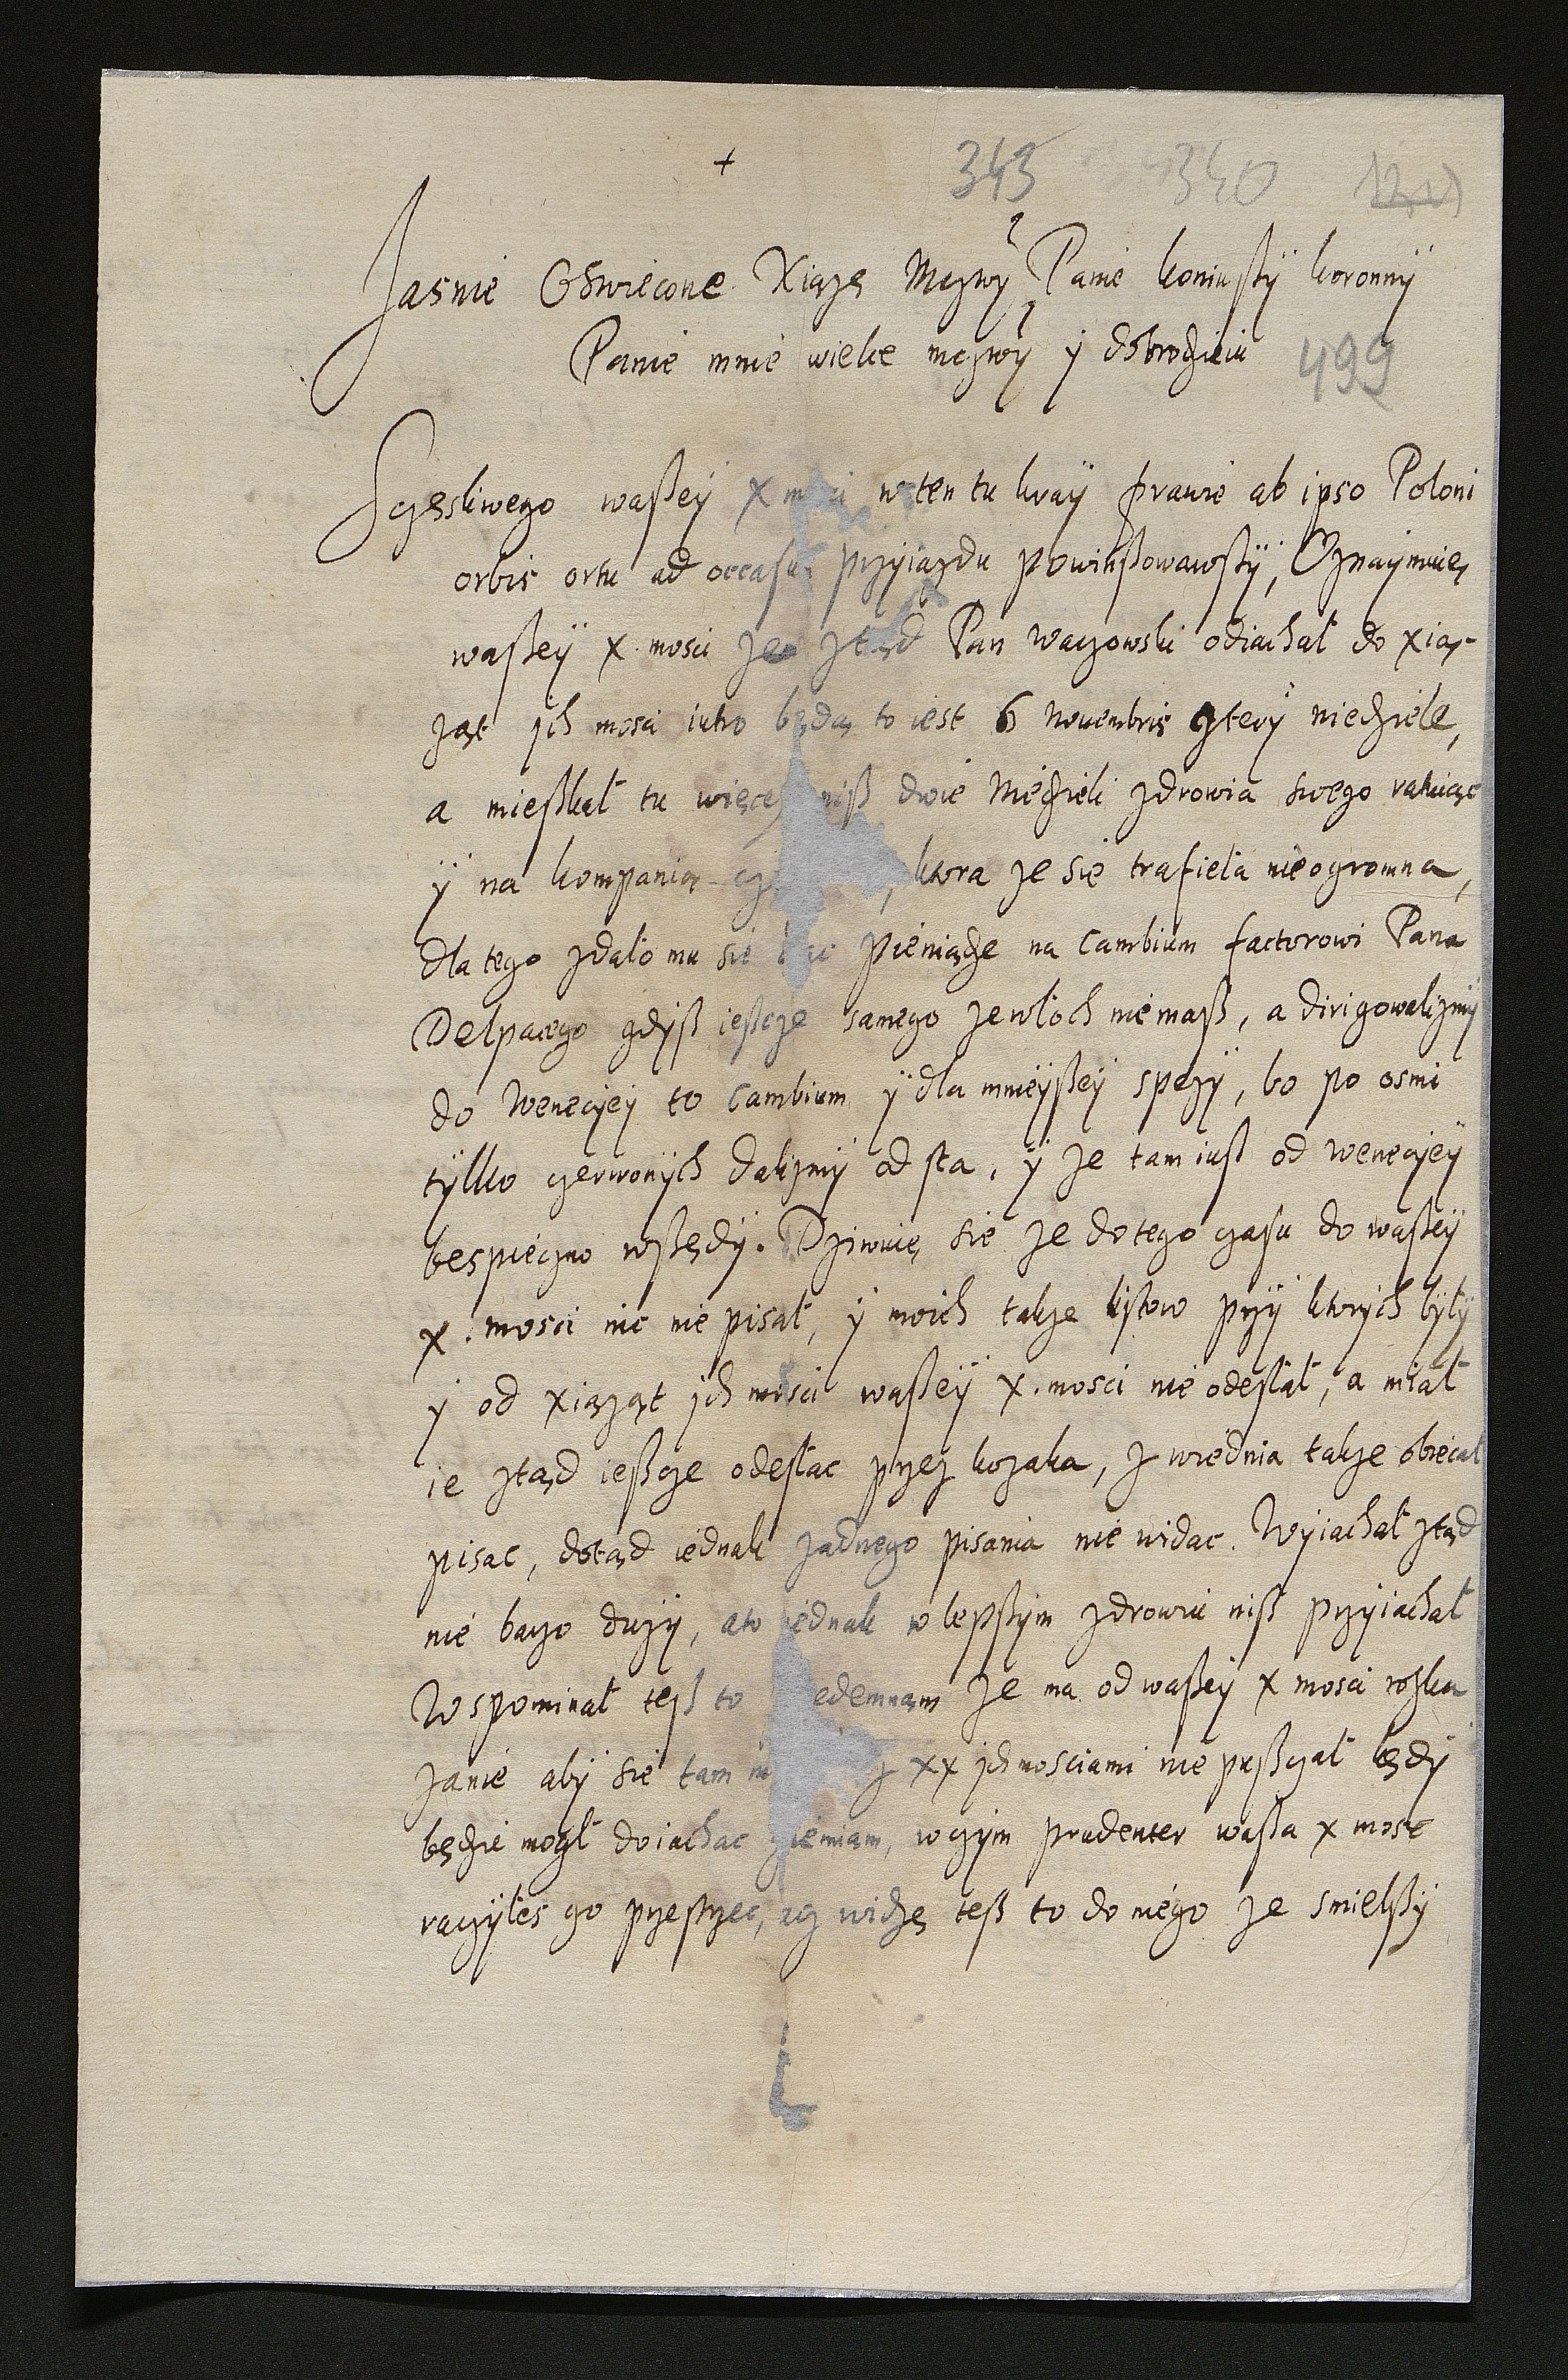 +
343 340
Jasnie Oswiecone Xiążę Mczwy Panie koniuszy koronny
Panie mnie wielce mczwy y dobrodzieiu 499
Sczesliwego waszey X m w ten tu kray prawie ab ipso Poloni
orbis ortu ad occasu przyiazdu powinszowawszy, Oznaymuię
waszey X. mosci ze ztąd Pan Waczowski odiachał do xią-
ząt jch mosci iutro będą to iest 6 Novembris cztery niedziele,
a mieszkał tu więcey nisz dwie niedzieli zdrowia swego ratuiąc
y na kompanią ktora ze sie trafieła nieogromna,
dla tego zdało mu sie pieniądze na cambium factorowi Pana
Delpacego gdysz iescze samego ze włoch niemasz, a dirigowalizmy
do Wenecyey to cambium y dla mnieyszey spezy, bo po osmi
tylko czerwonych dalizmy od sta, y ze tam iusz od wenecyey
bespieczno wszędy. Dziwuię sie ze do tego czasu do waszey
X. mosci nic nie pisał, y moich takze listow przy ktorych były
y od xiąząt jch mosci waszey X. mosci nie odesłał, a miał
ie ztąd iescze odesłac przez kozaka, z wiednia takze obiecał
pisac, dotąd iednak zadnego pisania nie widac. Wyiachał ztąd
nie baczo duzy, ato iednak w lepszym zdrowiu nisz przyiachał
Wspominał tesz to edemnąm ze ma od waszey X mosci roska
zanie aby sie tam z XX jchmosciami nie puszczał kędy
będzie mogł doiachac ziemiam, wczym prudenter wasza X mosc
raczyłes go przestrzec, acz widzę tesz to do niego ze smielszy